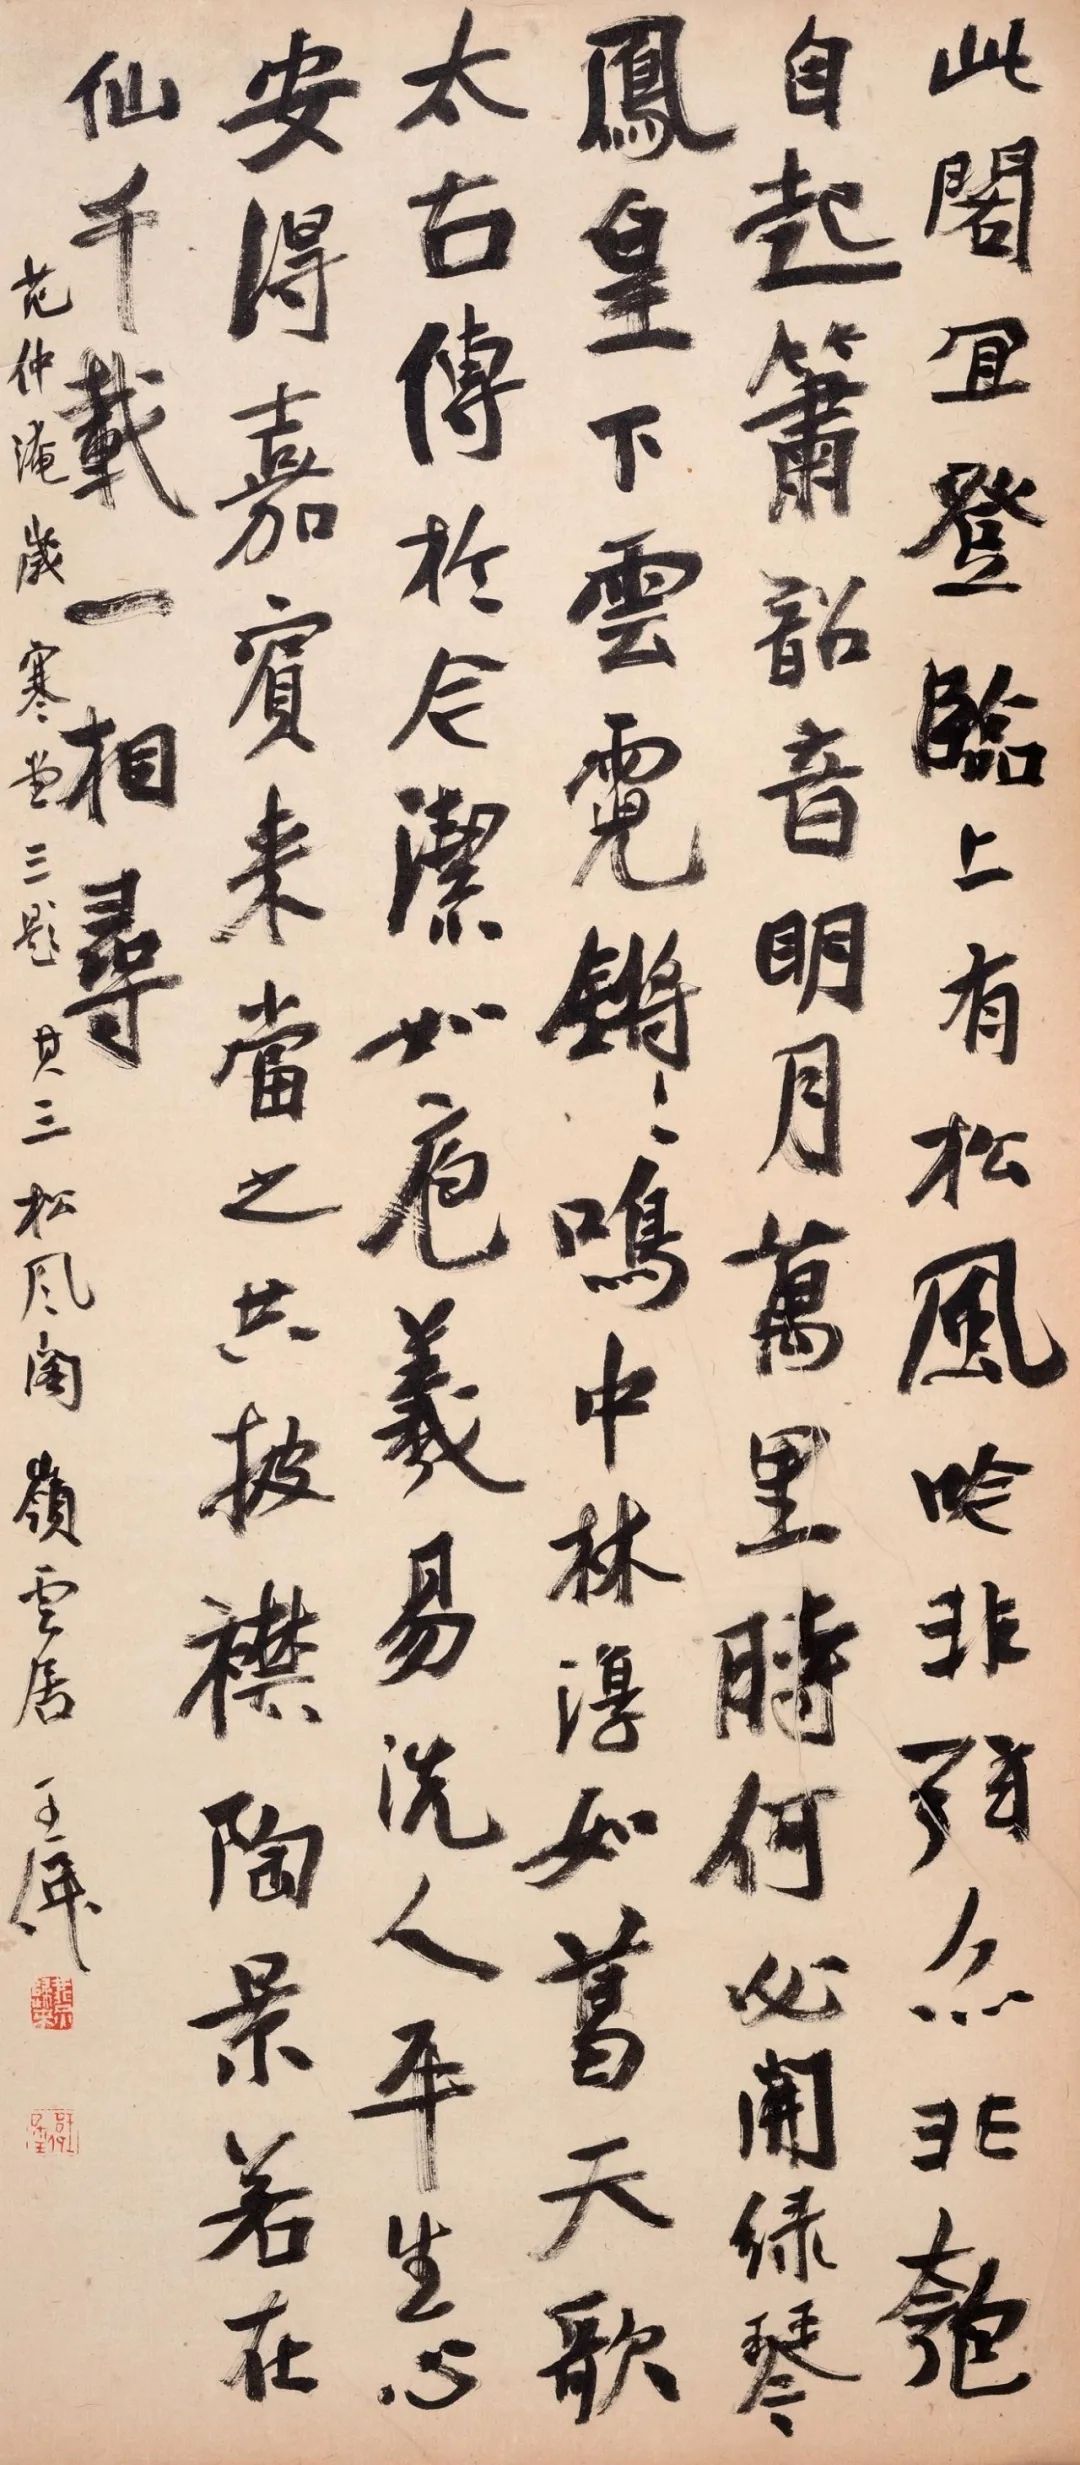 此閣宜登臨上有松風吟非弦亦非匏
自起簫韶音明月萬里時何必開綠琴
鳳皇下雲霓鏘〻鳴中林淳如葛天歌
太古傳於今潔如庖羲易洗人平生心
安得嘉賓來當之共披襟陶景若在
仙千載一相尋
范仲淹歲寒堂三題其三松风阁嶺雲居王偉